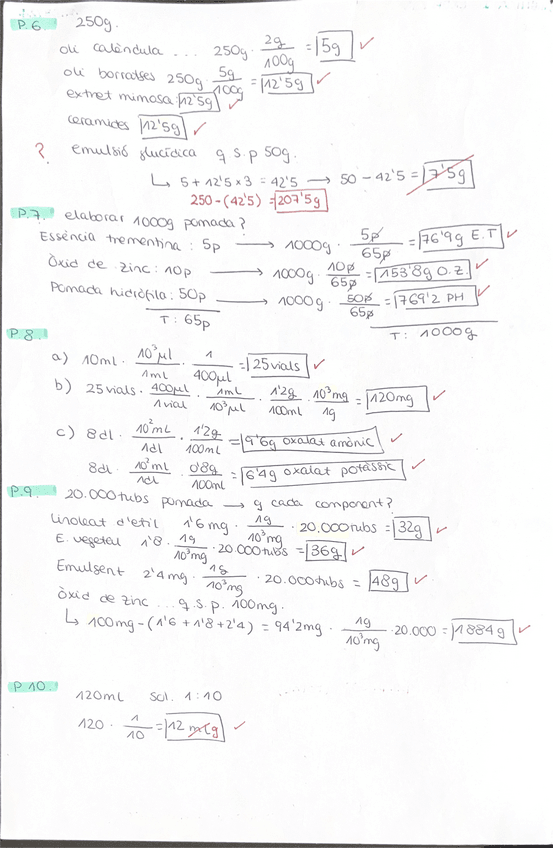 P.6 250g.
oli calèndula ... 250g · 2g/100g = 5g ✓
oli borratges 250g · 5g/100g = 12'5g ✓
extret mimosa: 12'5g ✓
ceramides 12'5g ✓
? emulsió glucídica q s.p 50g.
↳ 5 + 12'5 x 3 = 42'5 → 50 - 42'5 = 7'5g
250 - (42'5) = 207'5g
P.7. elaborar 1000g pomada?
Essència trementina: 5p → 1000g · 5p/65p = 76'9g E.T ✓
Òxid de zinc: 10p → 1000g · 10p/65p = 153'8g O.Z. ✓
Pomada hidròfila: 50p → 1000g · 50p/65p = 769'2 PH ✓
T: 65p T: 1000g
P.8
a) 10ml · 10³µl/1ml · 1/400µl = 25 vials ✓
b) 25 vials · 400µl/1vial · 1ml/10³µl · 1'2g/100ml · 10³mg/1g = 120mg ✓
c) 8dl · 10²mL/1dl · 1'2g/100mL = 9'6g oxalat amònic ✓
8dl · 10²mL/1dl · 0'8g/100mL = 6'4g oxalat potàssic ✓
P.9. 20.000 tubs pomada → g cada component?
Linoleat d'etil 1'6 mg · 1g/10³mg · 20.000 tubs = 32g ✓
E. vegetal 1'8 · 1g/10³mg · 20.000 tubs = 36g ✓
Emulgent 2'4mg · 1g/10³mg · 20.000 tubs = 48g ✓
òxid de zinc ... q.s.p. 100mg.
↳ 100mg - (1'6 + 1'8 + 2'4) = 94'2mg · 1g/10³mg · 20.000 = 1884g ✓
P.10. 120ml Sol. 1:10
120 · 1/10 = 12 g ✓